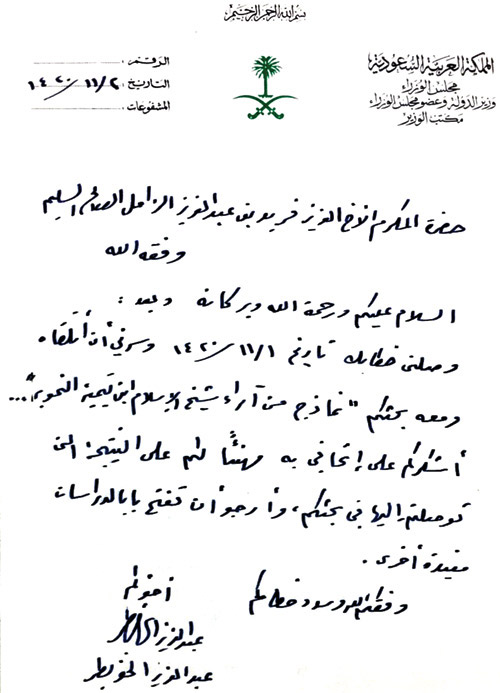 بسم الله الرحمن الرحيم
المملكة العربية السعودية
مجلس الوزراء
وزير الدولة وعضو مجلس الوزراء
مكتب الوزير
الرقم :
التاريخ : ١٤٢٠/١١/٢
المشفوعات :
حضرة المكرم الأخ العزيز فريد بن عبدالعزيز الزامل الصالح السليم
وفقه الله
السلام عليكم ورحمة الله وبركاته وبعد :
وصلني خطابك تاريخ ١٤٢٠/١١/١ وسرني أن أتلقاه
ومعه بحثكم "نماذج من آراء شيخ الإسلام ابن تيمية النحوية"...
أشكركم على إتحافي به مهنئًا لكم على النتيجة التي
توصلتم إليها في بحثكم، وأرجو أن تفتح بابا لدراسات
مفيدة أخرى .
وفقكم الله وسدد خطاكم
أخوكم
عبدالعزيز
عبدالعزيز الخويطر